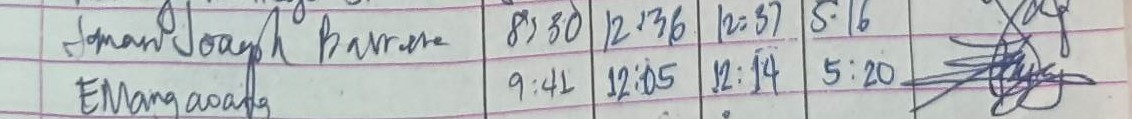 Joman Joagh Barrere 8:30 12:36 12:37 5:16
EMangaoang 9:41 12:05 12:14 5:20